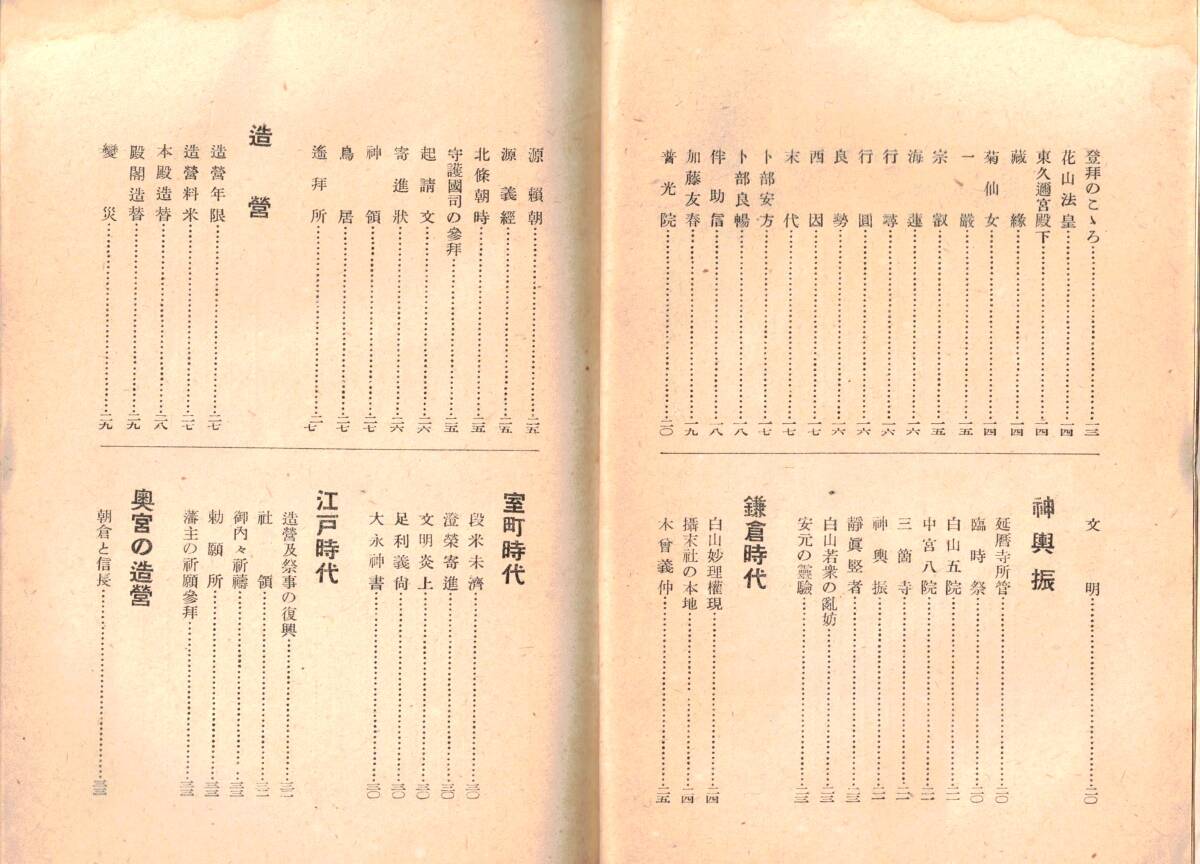 登拜のこゝろ…………一三
花山法皇…………一四
東久邇宮殿下…………一四
藏緣…………一四
菊仙女…………一四
一嚴…………一五
宗叡…………一五
海蓮…………一六
行尋…………一六
行圓…………一六
良勢…………一六
西因…………一七
末代…………一七
卜部安方…………一七
卜部良暢…………一八
伴助信…………一八
加藤友春…………一九
普光院…………二〇
文明…………二〇
神輿振
延曆寺所管…………二〇
臨時祭…………二〇
白山五院…………二一
中宮八院…………二一
三箇寺…………二一
神輿振…………二一
靜眞竪者…………二二
白山若衆の亂妨…………二三
安元の靈驗…………二三
鎌倉時代
白山妙理權現…………二四
攝末社の本地…………二四
木曾義仲…………二五
源賴朝…………二五
源義經…………二五
北條朝時…………二五
守護國司の參拜…………二五
起請文…………二六
寄進狀…………二六
神領…………二七
鳥居…………二七
遙拜所…………二七
造營
造營年限…………二七
造營料米…………二七
本殿造替…………二八
殿閣造替…………二九
變災…………二九
室町時代
段米未濟…………三〇
澄榮寄進…………三〇
文明炎上…………三〇
足利義尙…………三〇
大永神書…………三〇
江戸時代
造營及祭事の復興…………三一
社領…………三一
御內々祈禱…………三二
勅願所…………三二
藩主の祈願參拜…………三二
奧宮の造營
朝倉と信長…………三三